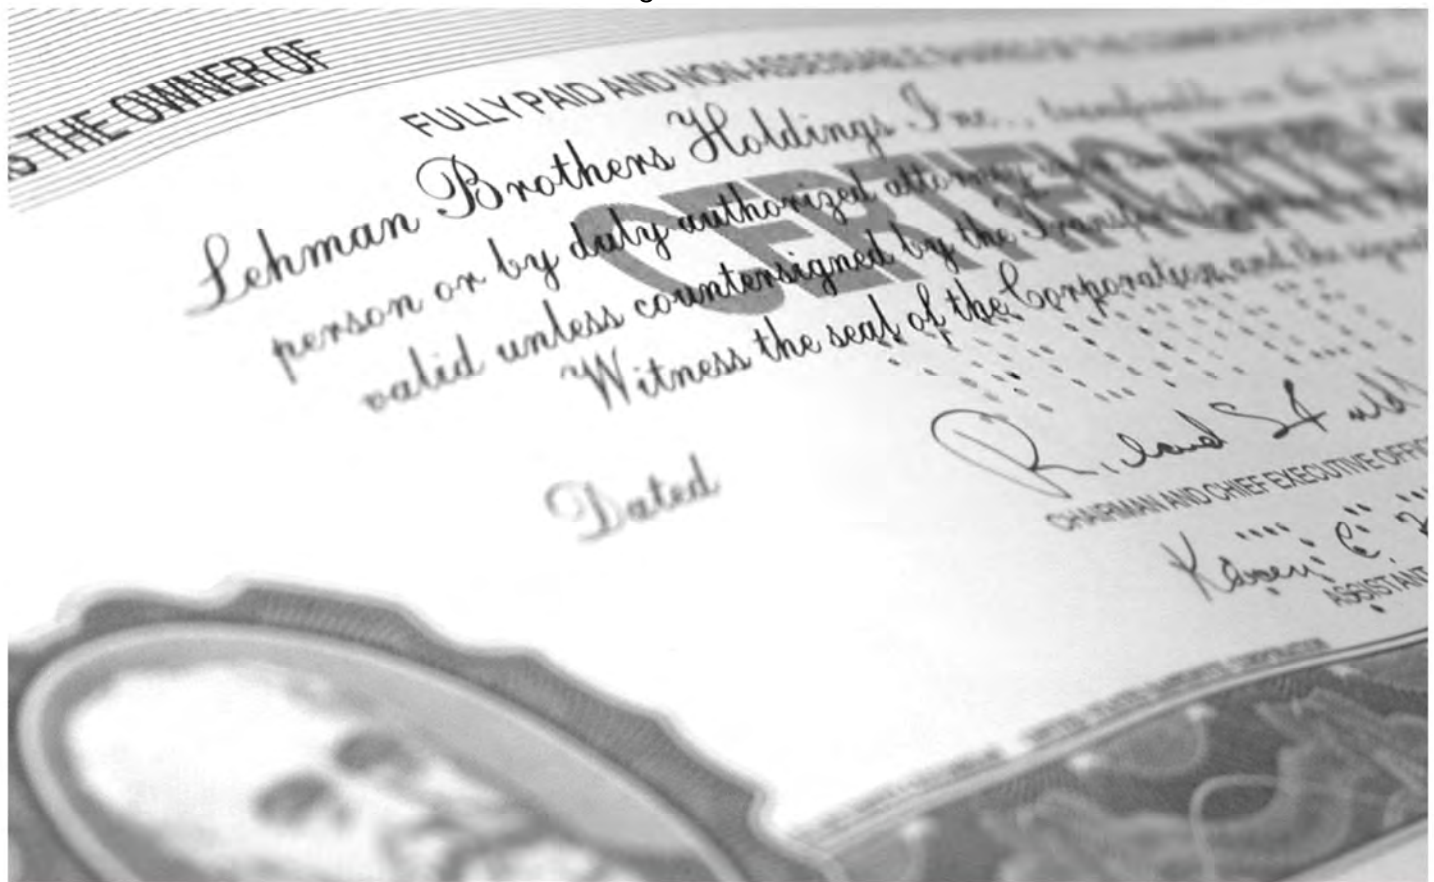 S THE OWNER OF
FULLY PAID AND NON-ASSESSABLE SHARES OF THE COMMON
Lehman Brothers Holdings Inc., transferable on the books
CERTIFICATE
person or by duly authorized attorney upon
valid unless countersigned by the Transfer
Witness the seal of the Corporation and the signat
Dated
CHAIRMAN AND CHIEF EXECUTIVE OFFIC
Karen C.
ASSISTANT